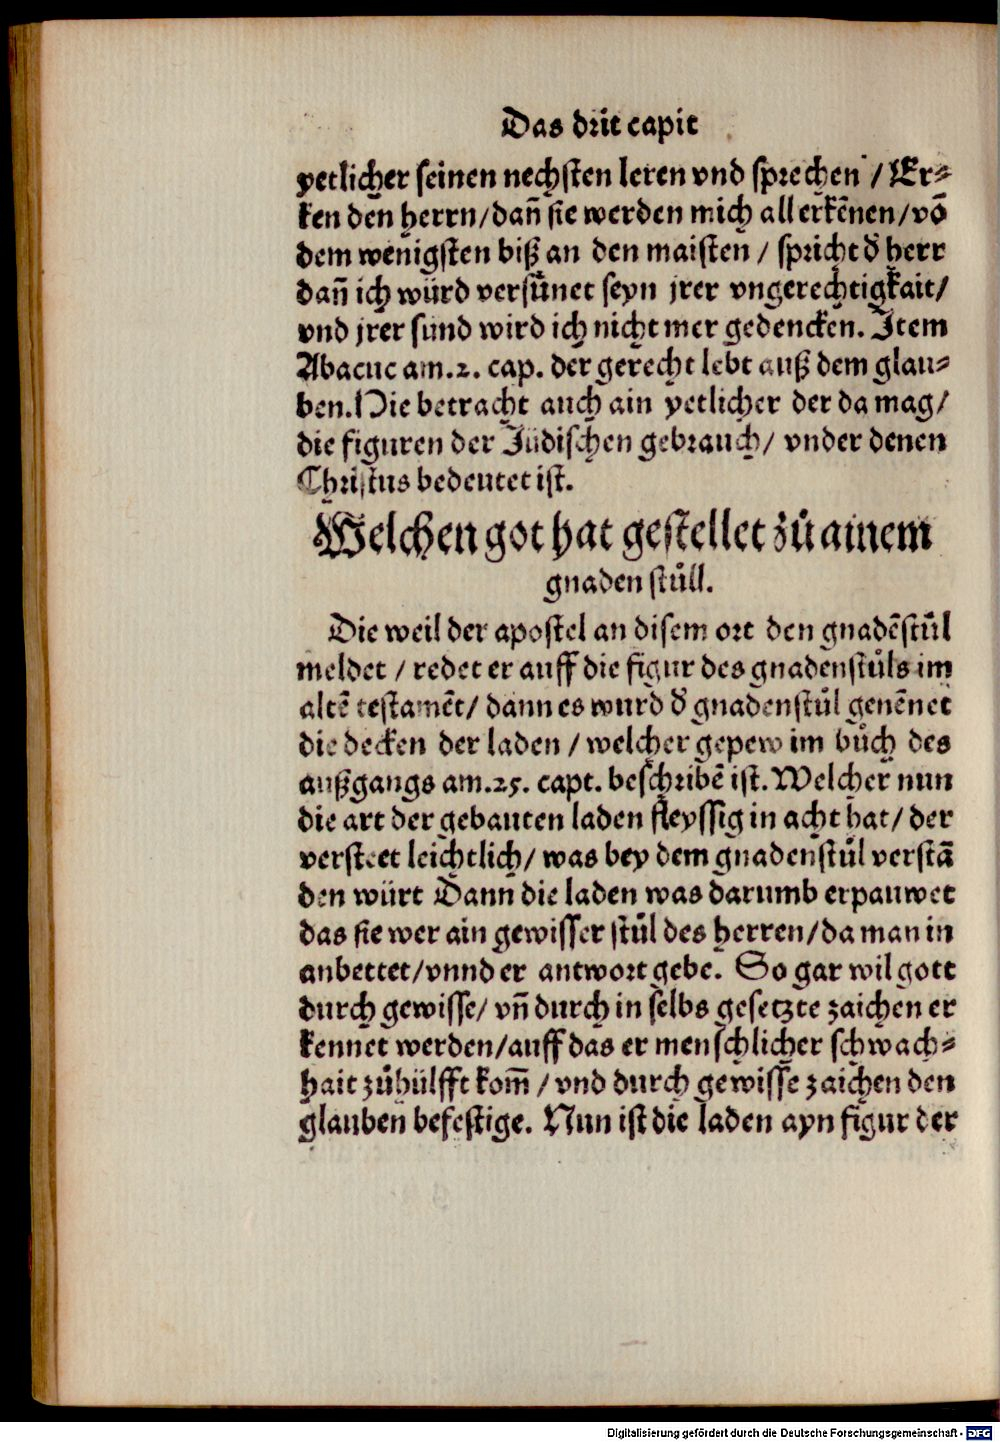 Das drit capit
yetlicher seinen nechsten leren vnd sprechen / Er⸗
ken den herrn/dañ sie werden mich all erkēnen/võ
dem wenigsten biß an den maisten / spricht d̕ herr
dañ ich würd versünet seyn jrer vngerechtigkait/
vnd jrer sünd wird ich nicht mer gedencken. Item
Abacuc am.2. cap. der gerecht lebt auß dem glau⸗
ben. Hie betracht auch ain yetlicher der da mag/
die figuren der Jüdischen gebrauch/ vnder denen
Christus bedeutet ist.
Welchen got hat gestellet zů ainem
gnaden stůll.
Die weil der apostel an disem ort den gnadēstůl
meldet / redet er auff die figur des gnadenstůls im
altē testamēt/ dann es wurd d̕ gnadenstůl genēnet
die decken der laden / welcher gepew im bůch des
außgangs am.25. capt. beschribē ist. Welcher nun
die art der gebauten laden fleyssig in acht hat/ der
versteet leichtlich/ was bey dem gnadenstůl verstā
den würt Dann die laden was darumb erpauwet
das sie wer ain gewisser stůl des herren/da man in
anbettet/vnnd er antwort gebe. So gar wil gott
durch gewisse/ vñ durch in selbs gesetzte zaichen er
kennet werden/auff das er menschlicher schwach⸗
hait zůhülfft kom̄ / vnd durch gewisse zaichen den
glauben befestige. Nun ist die laden ayn figur der
Digitalisierung gefördert durch die Deutsche Forschungsgemeinschaft - DFG